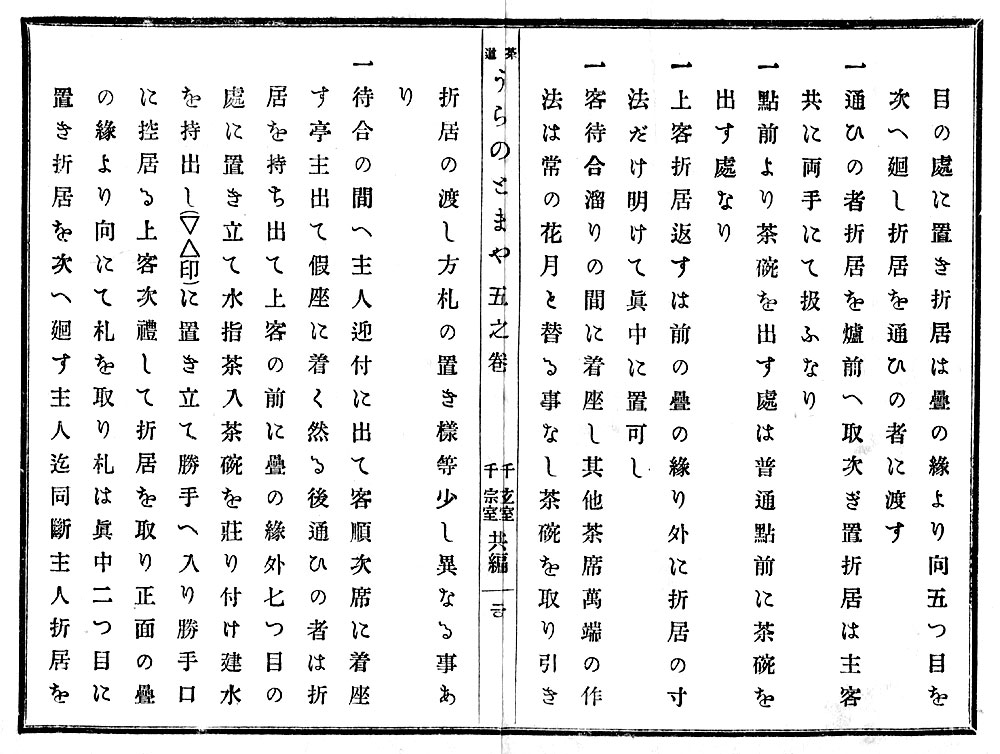 目の處に置き折居は疊の緣より向五つ目を
次へ廻し折居を通ひの者に渡す
一通ひの者折居を爐前へ取次ぎ置折居は主客
共に両手にて扱ふなり
一點前より茶碗を出す處は普通點前に茶碗を
出す處なり
一上客折居返すは前の疊の緣り外に折居の寸
法だけ明けて眞中に置可し
一客待合溜りの間に着座し其他茶席萬端の作
法は常の花月と替る事なし茶碗を取り引き
茶道 うらのとまや 五之卷 千玄室 千宗室 共編
折居の渡し方札の置き樣等少し異なる事あ
り
一待合の間へ主人迎付に出て客順次席に着座
す亭主出て假座に着く然る後通ひの者は折
居を持ち出て上客の前に疊の緣外七つ目の
處に置き立て水指茶入茶碗を莊り付け建水
を持出し(▽△印)に置き立て勝手へ入り勝手口
に控居る上客次禮して折居を取り正面の疊
の緣より向にて札を取り札は眞中二つ目に
置き折居を次へ廻す主人迄同斷主人折居を